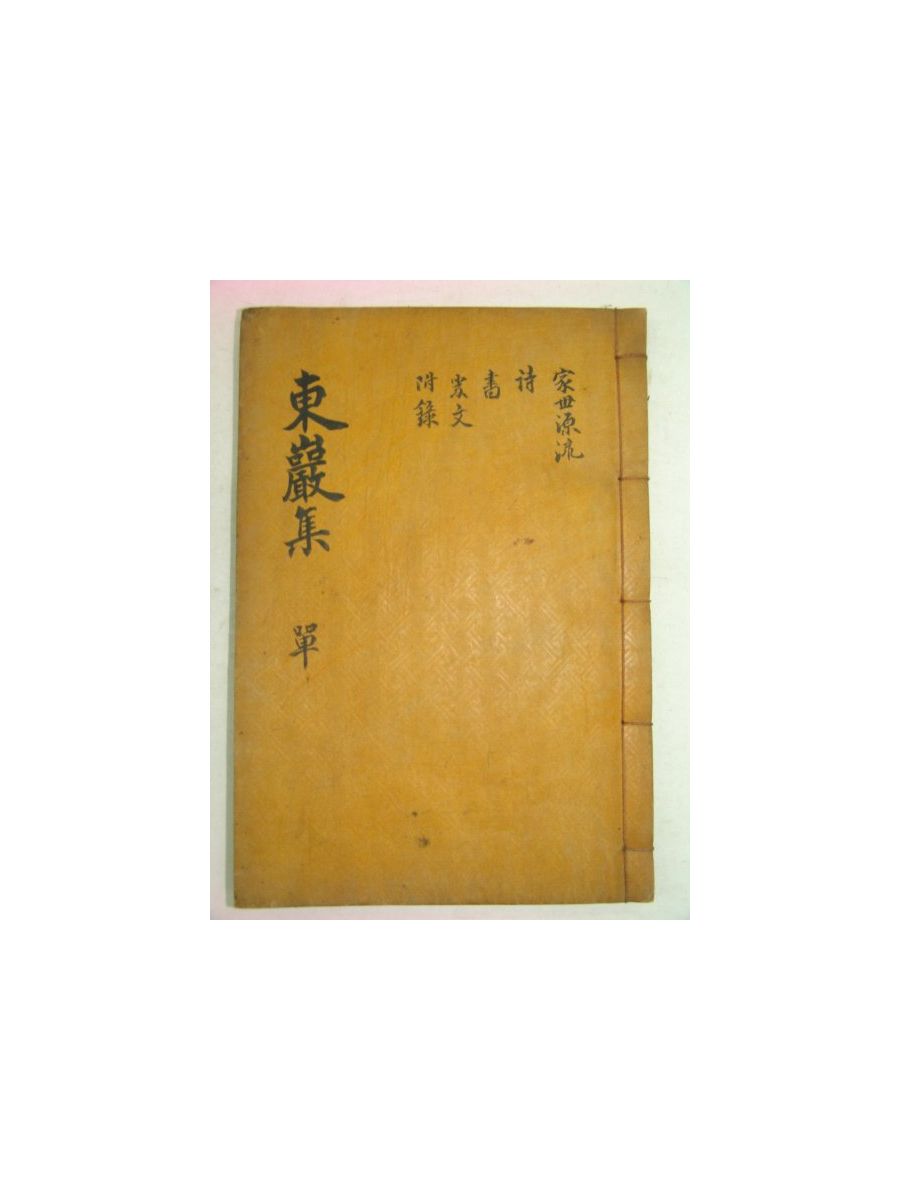 家世源流
詩
書
祭文
附錄
東巖集 單